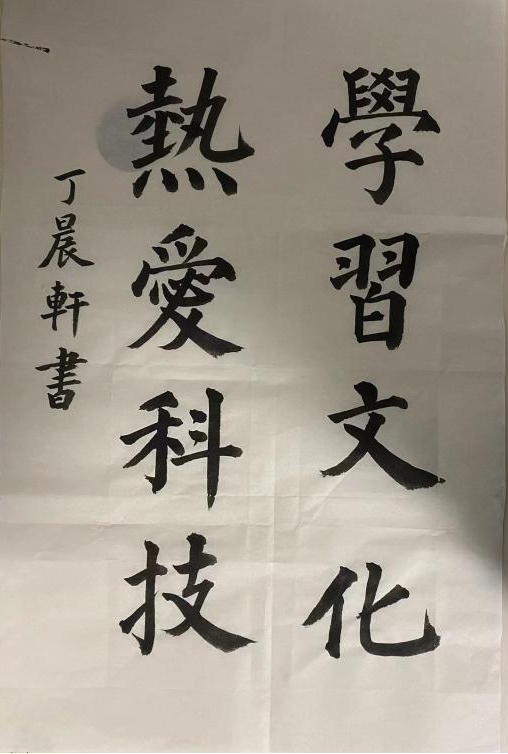 學習文化
熱愛科技
丁晨軒書